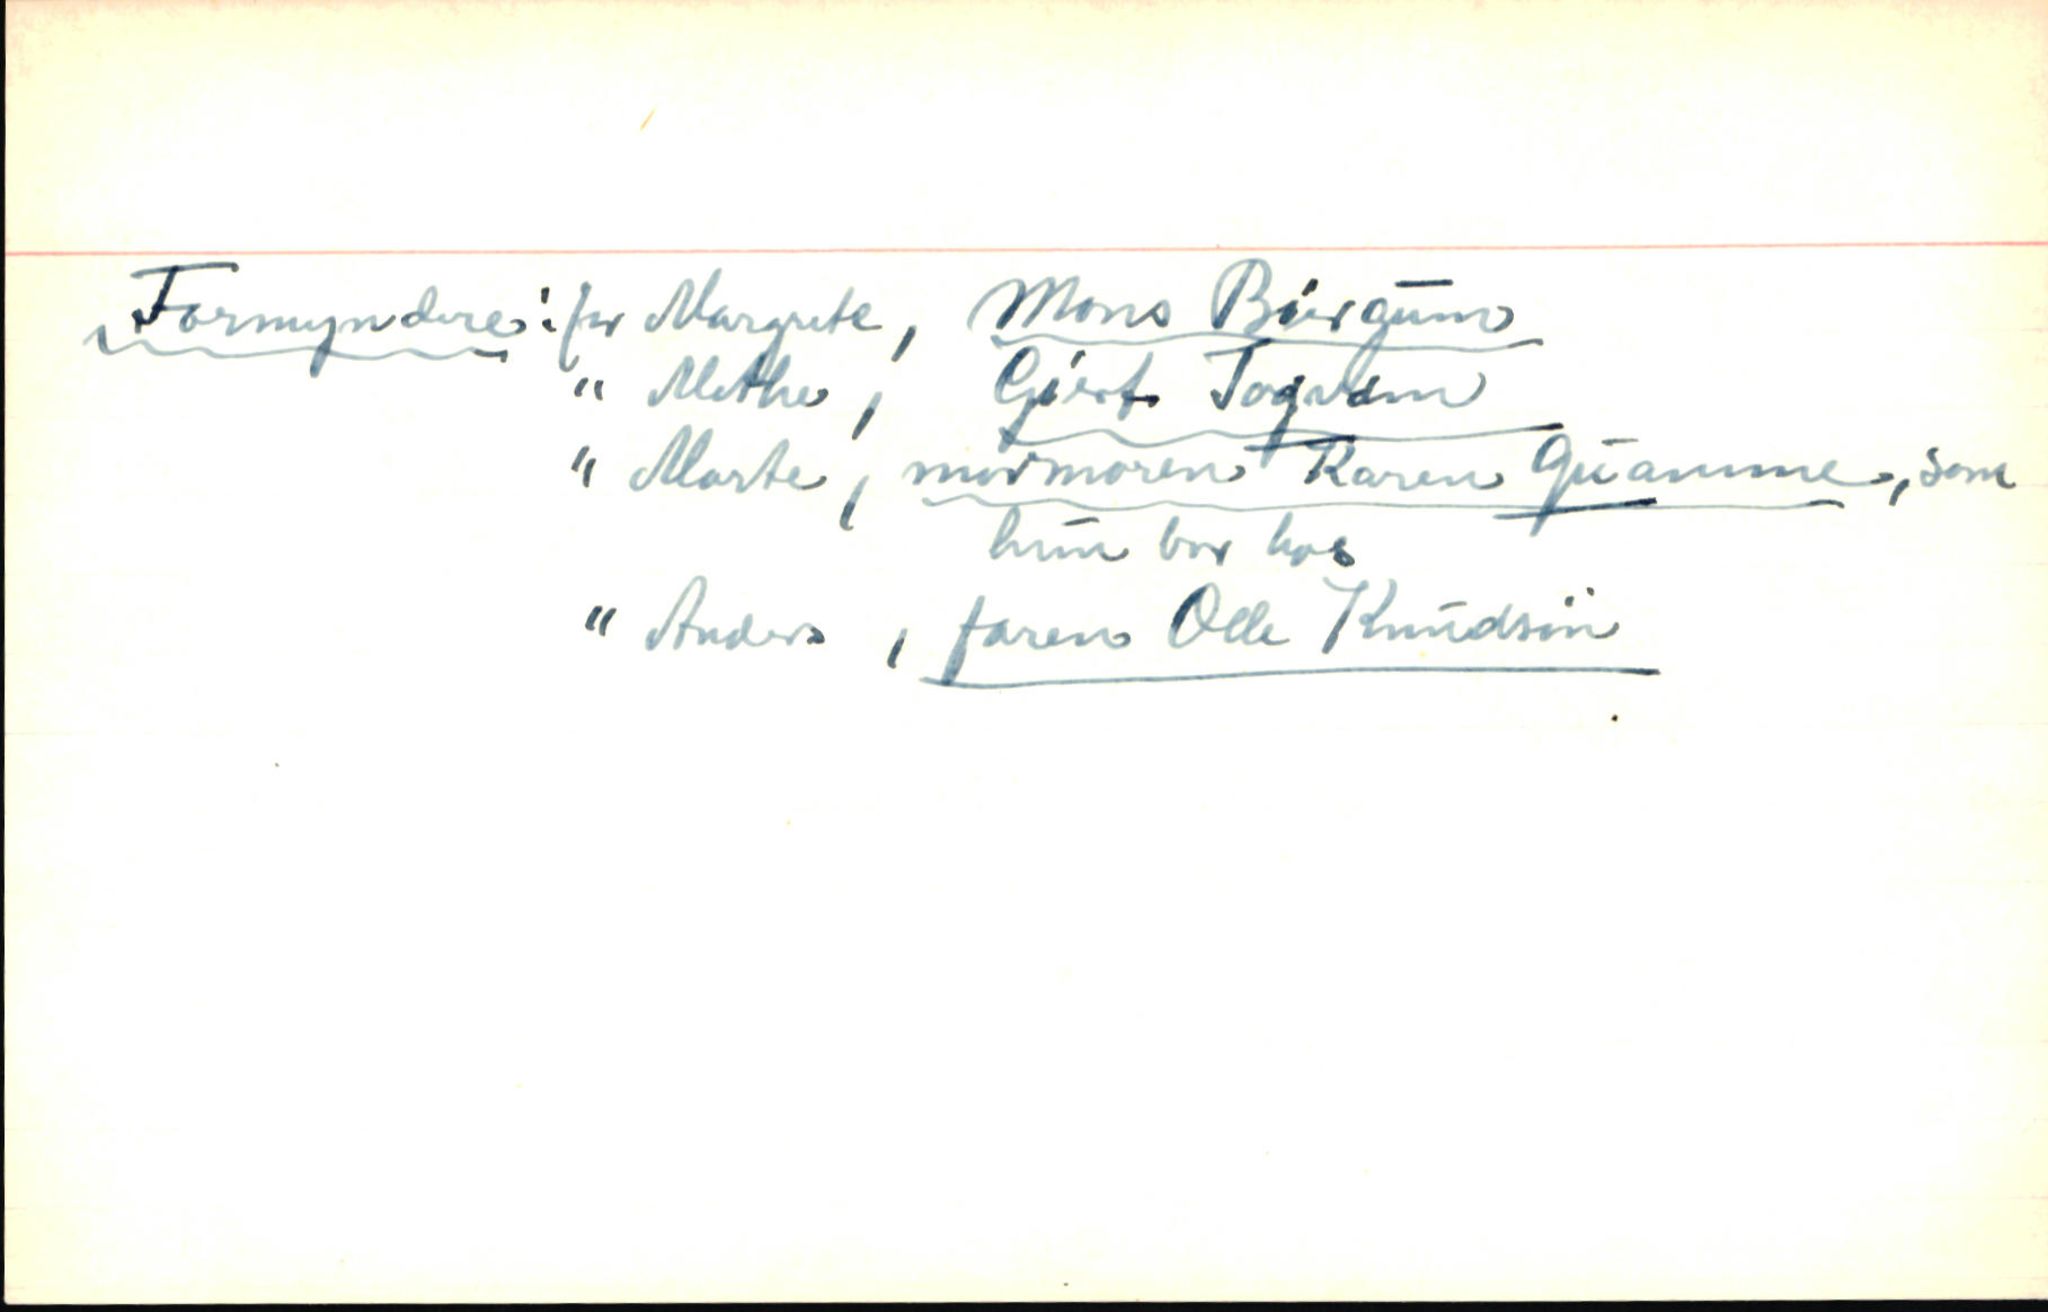 Formyndere: for Margrete, Mons Biergum
" Methe, Giert
" Marte, mormoren Karen Quamme, som
hun bor hos
" Anders, faren Olle Knudsøn